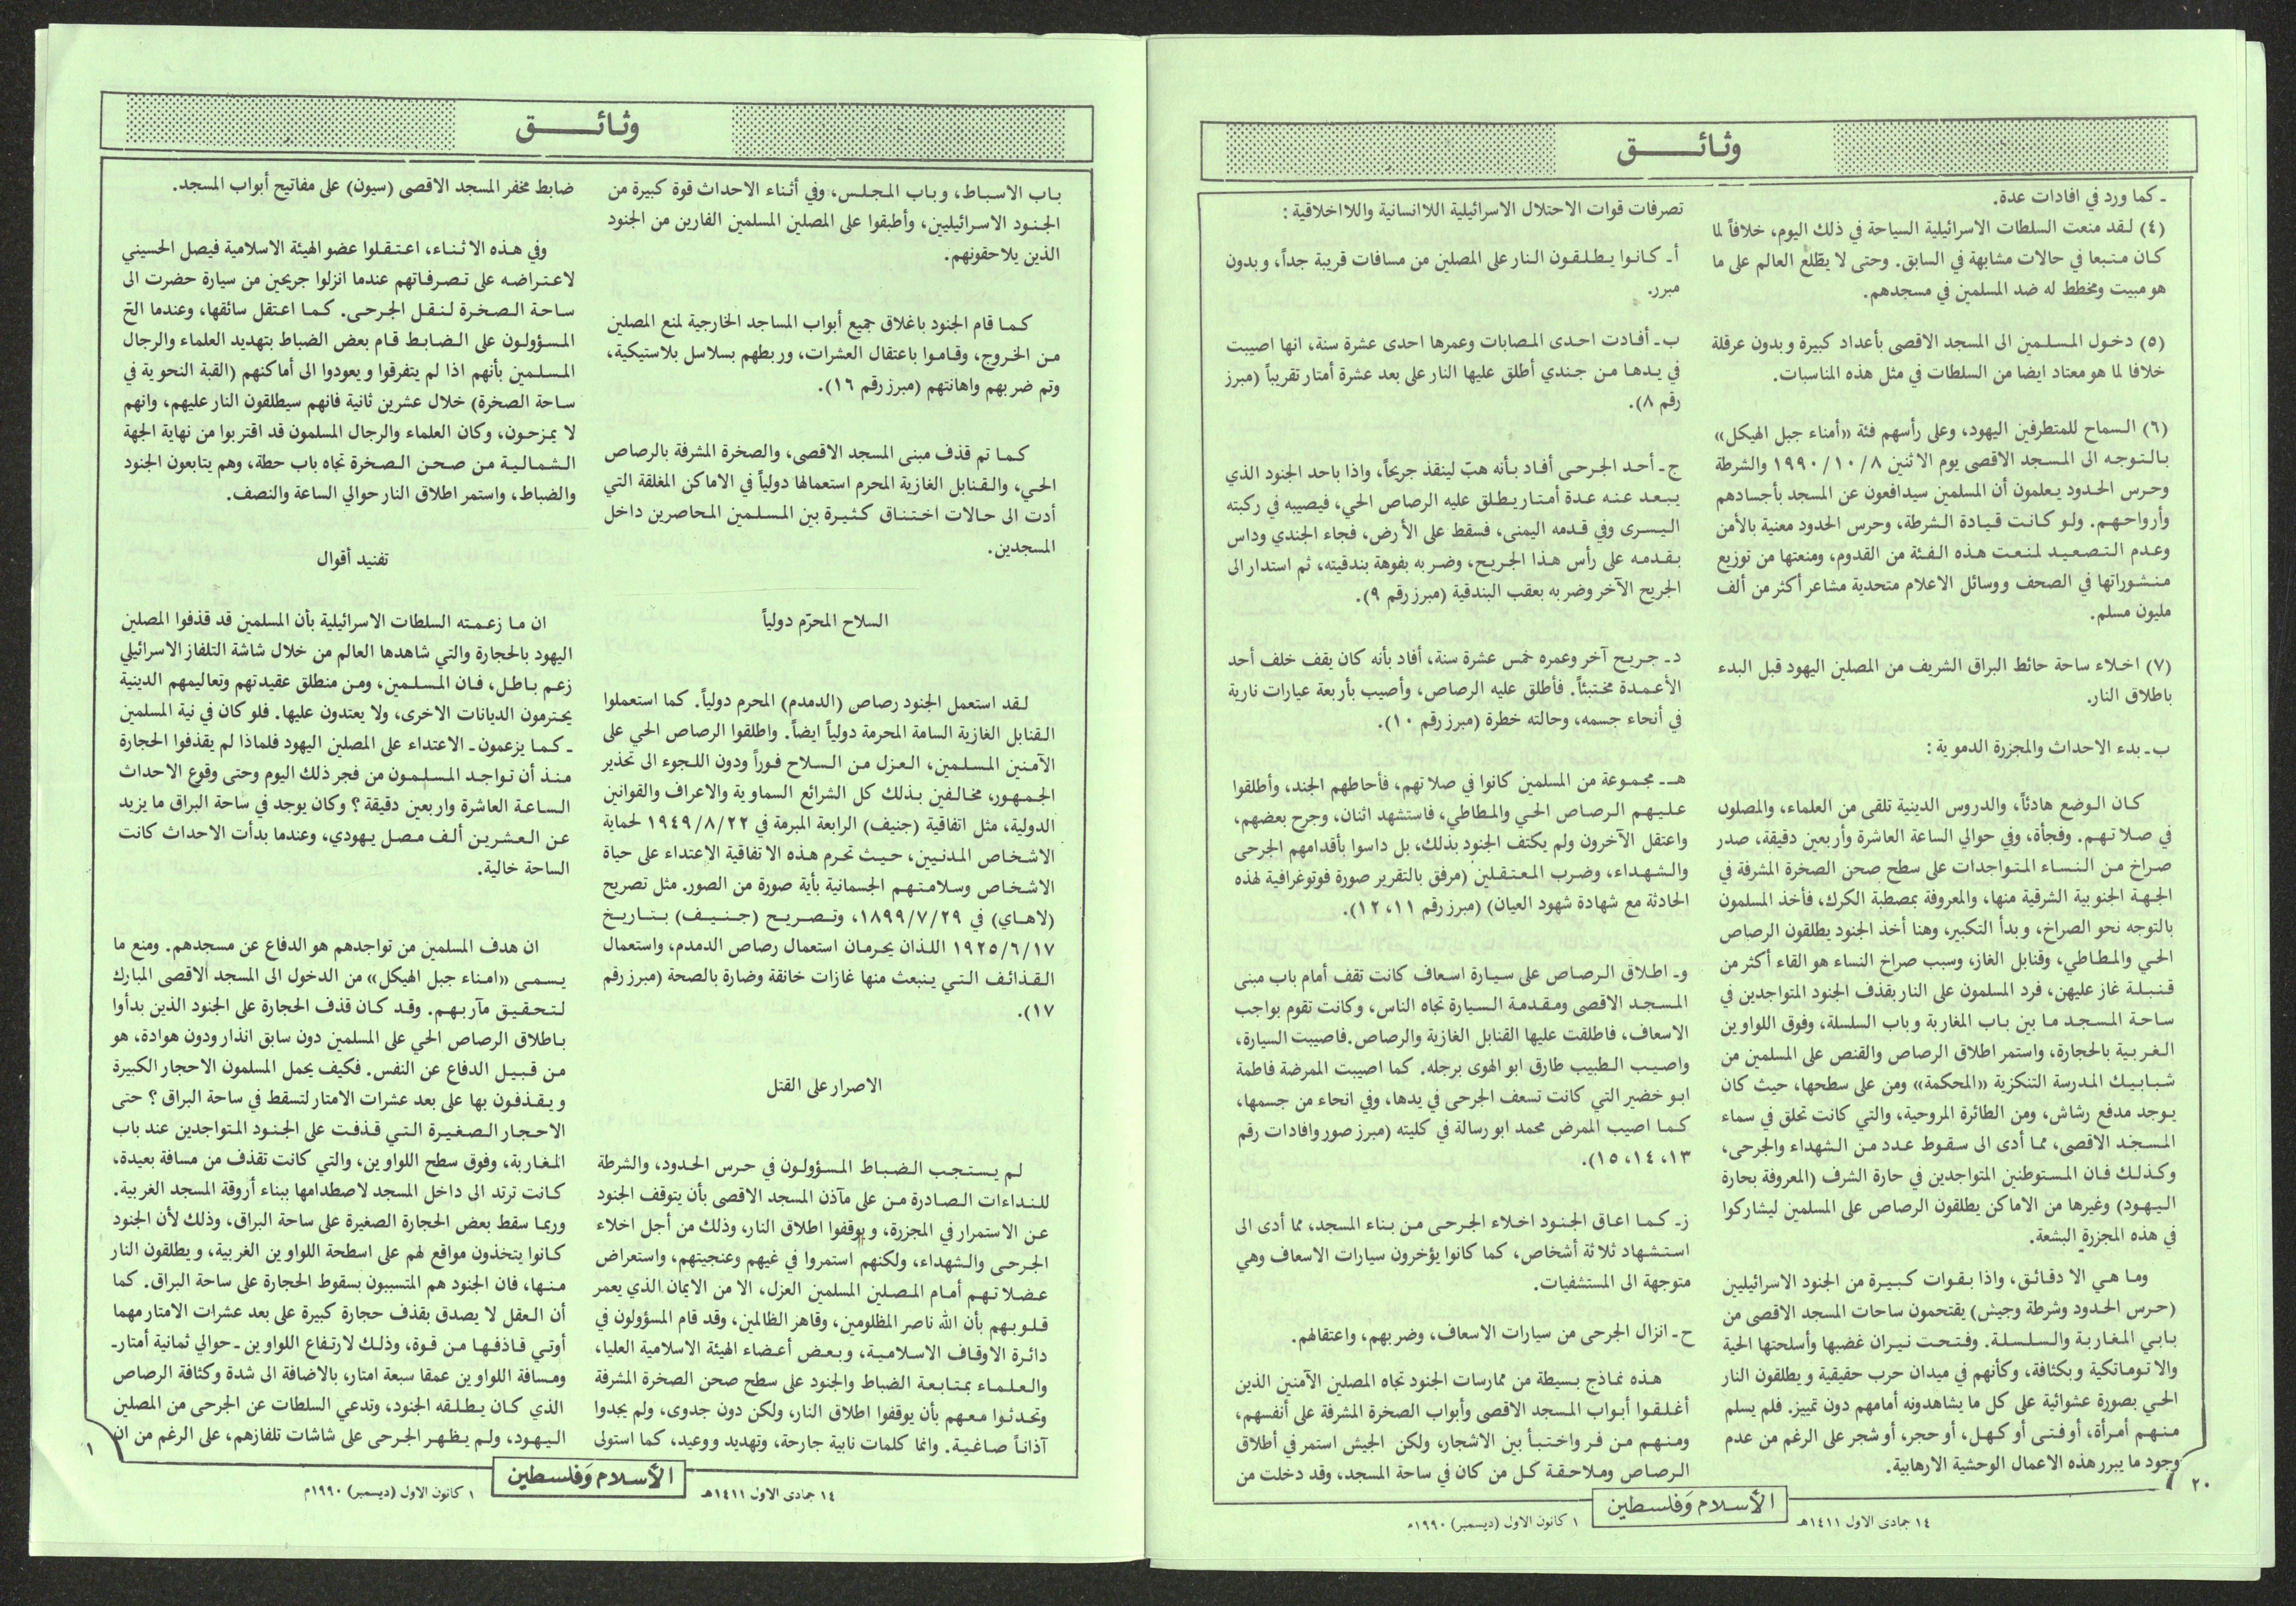 وثائـــــق
ـ كما ورد في افادات عدة.
(٤) لقد منعت السلطات الاسرائيلية السياحة في ذلك اليوم، خلافاً لما
كان متبعا في حالات مشابهة في السابق. وحتى لا يطّلع العالم على ما
هو مبيت ومخطط له ضد المسلمين في مسجدهم.
(٥) دخول المسلمين الى المسجد الاقصى بأعداد كبيرة وبدون عرقلة
خلافا لما هو معتاد ايضا من السلطات في مثل هذه المناسبات.
(٦) السماح للمتطرفين اليهود، وعلى رأسهم فئة «أمناء جبل الهيكل»
بالتوجه الى المسجد الاقصى يوم الاثنين ١٩٩٠/١٠/٨ والشرطة
وحرس الحدود يعلمون أن المسلمين سيدافعون عن المسجد بأجسادهم
وأرواحهم. ولو كانت قيادة الشرطة، وحرس الحدود معنية بالأمن
وعدم التصعيد لمنعت هذه الفئة من القدوم، ومنعتها من توزيع
منشوراتها في الصحف ووسائل الاعلام متحدية مشاعر أكثر من ألف
مليون مسلم.
(٧) اخلاء ساحة حائط البراق الشريف من المصلين اليهود قبل البدء
باطلاق النار.
ب ـ بدء الاحداث والمجزرة الدموية :
كان الوضع هادئاً، والدروس الدينية تلقى من العلماء، والمصلون
في صلاتهم. وفجأة، وفي حوالي الساعة العاشرة وأربعين دقيقة، صدر
صراخ من النساء المتواجدات على سطح صحن الصخرة المشرفة في
الجهة الجنوبية الشرقية منها، والمعروفة بمصطبة الكرك، فأخذ المسلمون
بالتوجه نحو الصراخ، وبدأ التكبير، وهنا أخذ الجنود يطلقون الرصاص
الحي والمطاطي، وقنابل الغاز، وسبب صراخ النساء هو القاء أكثر من
قنبلة غاز عليهن، فرد المسلمون على النار بقذف الجنود المتواجدين في
ساحة المسجد ما بين باب المغاربة وباب السلسلة، وفوق اللواوين
الغربية بالحجارة، واستمر اطلاق الرصاص والقنص على المسلمين من
شبابيك المدرسة التنكزية «المحكمة» ومن على سطحها، حيث كان
يوجد مدفع رشاش، ومن الطائرة المروحية، والتي كانت تحلق في سماء
المسجد الاقصى، مما أدى الى سقوط عدد من الشهداء والجرحى،
وكذلك فان المستوطنين المتواجدين في حارة الشرف (المعروفة بحارة
اليهود) وغيرها من الاماكن يطلقون الرصاص على المسلمين ليشاركوا
في هذه المجزرة البشعة.
وما هي الا دقائق، واذا بقوات كبيرة من الجنود الاسرائيليين
(حرس الحدود وشرطة وجيش) يقتحمون ساحات المسجد الاقصى من
بابي المغاربة والسلسلة. وفتحت نيران غضبها وأسلحتها الحية
والاتوماتكية وبكثافة، وكأنهم في ميدان حرب حقيقية ويطلقون النار
الحي بصورة عشوائية على كل ما يشاهدونه أمامهم دون تمييز. فلم يسلم
منهم أمرأة، أو فتى أو كهل، أو حجر، أو شجر على الرغم من عدم
وجود ما يبرر هذه الاعمال الوحشية الارهابية.
تصرفات قوات الاحتلال الاسرائيلية اللاانسانية واللااخلاقية :
أـ كانوا يطلقون النار على المصلين من مسافات قريبة جداً، وبدون
مبرر.
ب ـ أفادت احدى المصابات وعمرها احدى عشرة سنة، انها اصيبت
في يدها من جندي أطلق عليها النار على بعد عشرة أمتار تقريباً (مبرز
رقم ٨).
ج ـ أحد الجرحى أفاد بأنه هبّ لينقذ جريحاً، واذا باحد الجنود الذي
يبعد عنه عدة أمتار يطلق عليه الرصاص الحي، فيصيبه في ركبته
اليسرى وفي قدمه اليمنى، فسقط على الأرض، فجاء الجندي وداس
بقدمه على رأس هذا الجريح، وضربه بفوهة بندقيته، ثم استدار الى
الجريح الآخر وضربه بعقب البندقية (مبرز رقم ٩).
د ـ جريح آخر وعمره خمس عشرة سنة، أفاد بأنه كان يقف خلف أحد
الأعمدة مختبئاً. فأطلق عليه الرصاص، وأصيب بأربعة عيارات نارية
في أنحاء جسمه، وحالته خطرة (مبرز رقم ١٠).
هـ ـ مجموعة من المسلمين كانوا في صلاتهم، فأحاطهم الجند، وأطلقوا
عليهم الرصاص الحي والمطاطي، فاستشهد اثنان، وجرح بعضهم،
واعتقل الآخرون ولم يكتف الجنود بذلك، بل داسوا بأقدامهم الجرحى
والشهداء، وضرب المعتقلين (مرفق بالتقرير صورة فوتوغرافية لهذه
الحادثة مع شهادة شهود العيان) (مبرز رقم ١١، ١٢).
و ـ اطلاق الرصاص على سيارة اسعاف كانت تقف أمام باب مبنى
المسجد الاقصى ومقدمة السيارة تجاه الناس، وكانت تقوم بواجب
الاسعاف، فاطلقت عليها القنابل الغازية والرصاص. فاصيبت السيارة،
واصيب الطبيب طارق ابو الهوى برجله. كما اصيبت الممرضة فاطمة
ابو خضير التي كانت تسعف الجرحى في يدها، وفي انحاء من جسمها،
كما اصيب الممرض محمد ابو رسالة في كليته (مبرز صور وافادات رقم
١٣، ١٤، ١٥).
زـ كما اعاق الجنود اخلاء الجرحى من بناء المسجد، مما أدى الى
استشهاد ثلاثة أشخاص، كما كانوا يؤخرون سيارات الاسعاف وهي
متوجهة الى المستشفيات.
ح ـ انزال الجرحى من سيارات الاسعاف، وضربهم، واعتقالهم.
هذه نماذج بسيطة من ممارسات الجنود تجاه المصلين الآمنين الذين
أغلقوا أبواب المسجد الاقصى وأبواب الصخرة المشرفة على أنفسهم،
ومنهم من فر واختبأ بين الاشجار، ولكن الجيش استمر في أطلاق
الرصاص وملاحقة كل من كان في ساحة المسجد، وقد دخلت من
٢٠
الأسلام وَفلسطين
١٤ جمادى الاول ١٤١١هـ
١ كانون الاول (ديسمبر) ١٩٩٠م
وثائـــــق
باب الاسباط، وباب المجلس، وفي أثناء الاحداث قوة كبيرة من
الجنود الاسرائيليين، وأطبقوا على المصلين المسلمين الفارين من الجنود
الذين يلاحقونهم.
كما قام الجنود باغلاق جميع أبواب المساجد الخارجية لمنع المصلين
من الخروج، وقاموا باعتقال العشرات، وربطهم بسلاسل بلاستيكية،
وتم ضربهم واهانتهم (مبرز رقم ١٦).
كما تم قذف مبنى المسجد الاقصى، والصخرة المشرفة بالرصاص
الحي، والقنابل الغازية المحرم استعمالها دولياً في الاماكن المغلقة التي
أدت الى حالات اختناق كثيرة بين المسلمين المحاصرين داخل
المسجدين.
السلاح المحرّم دولياً
لقد استعمل الجنود رصاص (الدمدم) المحرم دولياً. كما استعملوا
القنابل الغازية السامة المحرمة دولياً ايضاً. واطلقوا الرصاص الحي على
الآمنين المسلمين، العزل من السلاح فوراً ودون اللجوء الى تحذير
الجمهور، مخالفين بذلك كل الشرائع السماوية والاعراف والقوانين
الدولية، مثل اتفاقية (جنيف) الرابعة المبرمة في ١٩٤٩/٨/٢٢ لحماية
الاشخاص المدنيين، حيث تحرم هذه الاتفاقية الاعتداء على حياة
الاشخاص وسلامتهم الجسمانية بأية صورة من الصور. مثل تصريح
(لاهاي) في ١٨٩٩/٧/٢٩، وتصريح (جنيف) بتاريخ
١٩٢٥/٦/١٧ اللذان يحرمان استعمال رصاص الدمدم، واستعمال
القذائف التي ينبعث منها غازات خانقة وضارة بالصحة (مبرز رقم
١٧).
الاصرار على القتل
لم يستجب الضباط المسؤولون في حرس الحدود، والشرطة
للنداءات الصادرة من على مآذن المسجد الاقصى بأن يتوقف الجنود
عن الاستمرار في المجزرة، ويوقفوا اطلاق النار، وذلك من أجل اخلاء
الجرحى والشهداء، ولكنهم استمروا في غيهم وعنجيتهم، واستعراض
عضلاتهم أمام المصلين المسلمين العزل، الا من الايمان الذي يعمر
قلوبهم بأن الله ناصر المظلومين، وقاهر الظالمين، وقد قام المسؤولون في
دائرة الاوقاف الاسلامية، وبعض أعضاء الهيئة الاسلامية العليا،
والعلماء بمتابعة الضباط والجنود على سطح صحن الصخرة المشرفة
وتحدثوا معهم بأن يوقفوا اطلاق النار، ولكن دون جدوى، ولم يجدوا
آذاناً صاغية. وانما كلمات نابية جارحة، وتهديد ووعيد، كما استولى
ضابط مخفر المسجد الاقصى (سيون) على مفاتيح أبواب المسجد.
وفي هذه الاثناء، اعتقلوا عضو الهيئة الاسلامية فيصل الحسيني
لاعتراضه على تصرفاتهم عندما انزلوا جريحين من سيارة حضرت الى
ساحة الصخرة لنقل الجرحى. كما اعتقل سائقها، وعندما الحّ
المسؤولون على الضابط قام بعض الضباط بتهديد العلماء والرجال
المسلمين بأنهم اذا لم يتفرقوا ويعودوا الى أماكنهم (القبة النحوية في
ساحة الصخرة) خلال عشرين ثانية فانهم سيطلقون النار عليهم، وانهم
لا يمزحون، وكان العلماء والرجال المسلمون قد اقتربوا من نهاية الجهة
الشمالية من صحن الصخرة تجاه باب حطة، وهم يتابعون الجنود
والضباط، واستمر اطلاق النار حوالي الساعة والنصف.
تفنيد أقوال
ان ما زعمته السلطات الاسرائيلية بأن المسلمين قد قذفوا المصلين
اليهود بالحجارة والتي شاهدها العالم من خلال شاشة التلفاز الاسرائيلي
زعم باطل، فان المسلمين، ومن منطلق عقيدتهم وتعاليمهم الدينية
يحترمون الديانات الاخرى، ولا يعتدون عليها. فلو كان في نية المسلمين
ـ كما يزعمون ـ الاعتداء على المصلين اليهود فلماذا لم يقذفوا الحجارة
منذ أن تواجد المسلمون من فجر ذلك اليوم وحتى وقوع الاحداث
الساعة العاشرة واربعين دقيقة ؟ وكان يوجد في ساحة البراق ما يزيد
عن العشرين ألف مصل يهودي، وعندما بدأت الاحداث كانت
الساحة خالية.
ان هدف المسلمين من تواجدهم هو الدفاع عن مسجدهم. ومنع ما
يسمى «امناء جبل الهيكل» من الدخول الى المسجد الاقصى المبارك
لتحقيق مآربهم. وقد كان قذف الحجارة على الجنود الذين بدأوا
باطلاق الرصاص الحي على المسلمين دون سابق انذار ودون هوادة، هو
من قبيل الدفاع عن النفس. فكيف يحمل المسلمون الاحجار الكبيرة
ويقذفون بها على بعد عشرات الامتار لتسقط في ساحة البراق ؟ حتى
الاحجار الصغيرة التي قذفت على الجنود المتواجدين عند باب
المغاربة، وفوق سطح اللواوين، والتي كانت تقذف من مسافة بعيدة،
كانت ترتد الى داخل المسجد لاصطدامها ببناء أروقة المسجد الغربية.
وربما سقط بعض الحجارة الصغيرة على ساحة البراق، وذلك لأن الجنود
كانوا يتخذون مواقع لهم على اسطحة اللواوين الغربية، ويطلقون النار
منها، فان الجنود هم المتسببون بسقوط الحجارة على ساحة البراق. كما
أن العقل لا يصدق بقذف حجارة كبيرة على بعد عشرات الامتار مهما
أوتي قاذفها من قوة، وذلك لارتفاع اللواوين ـ حوالي ثمانية أمتارـ
ومسافة اللواوين عمقا سبعة امتار، بالاضافة الى شدة وكثافة الرصاص
الذي كان يطلقه الجنود، وتدعي السلطات عن الجرحى من المصلين
اليهود، ولم يظهر الجرحى على شاشات تلفازهم، على الرغم من ان
١
الأسلام وَفلسطين
١٤ جمادى الاول ١٤١١هـ
١ كانون الاول (ديسمبر) ١٩٩٠م